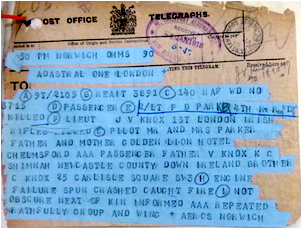 POST OFFICE TELEGRAPHS.
Office of Origin and Service Instructions.
30 PM NORWICH OHMS 90
ADASTRAL ONE LONDON
(A) 9T/2105 (B) REAMT 3891 (C) 140 RAF WD NO
3713 (D) PASSENGER (E) 2/LT P D PARKER 4TH
KILLED (F) LIEUT J V KNOX 1ST LONDON IRISH
RIFLES KILLED (G) PILOT MR AND MRS PARKER
FATHER AND MOTHER GOLDEN LION HOTEL
CHELMSFORD AAA PASSENGER FATHER V KNOX K C
SHIMNAH NEWCASTLE COUNTY DOWN IRELAND BROTHER
C KNOX 35 CARLISLE SQUARE SW3 (H) ENGINE
FAILURE SPUN CRASHED CAUGHT FIRE (I) NOT
OBSCURE NEXT OF KIN INFORMED AAA REPEATED
RATHFULLY GROUP AND WING + AEROS NORWICH